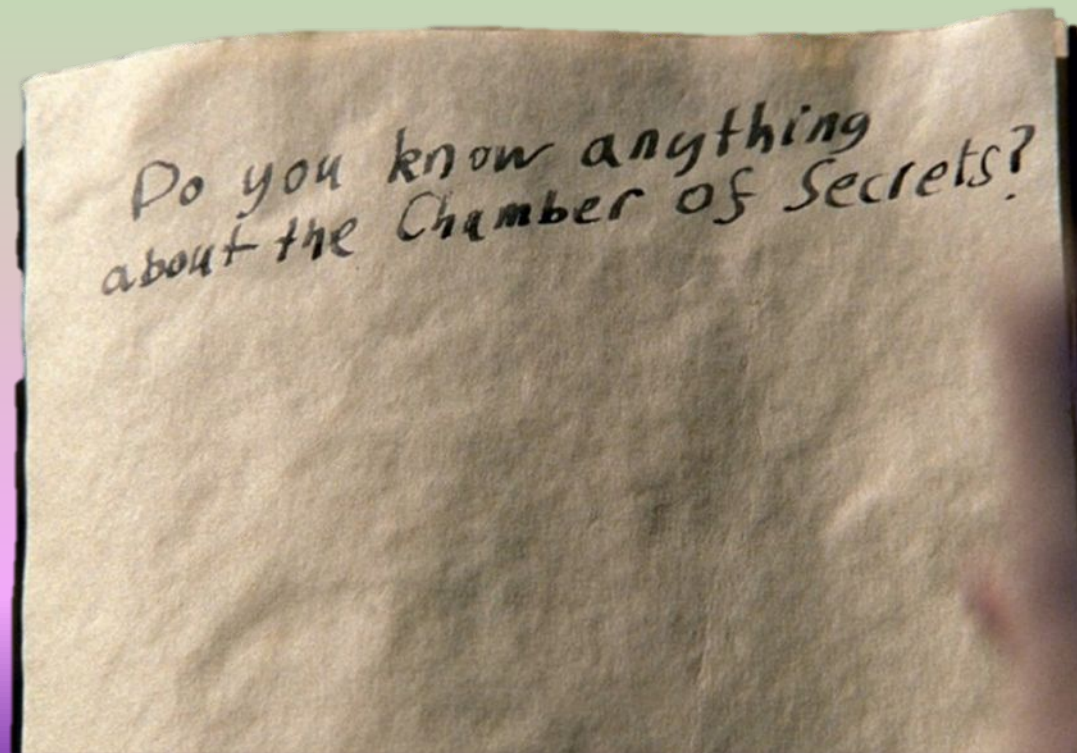 Do you know anything
about the Chamber of Secrets?